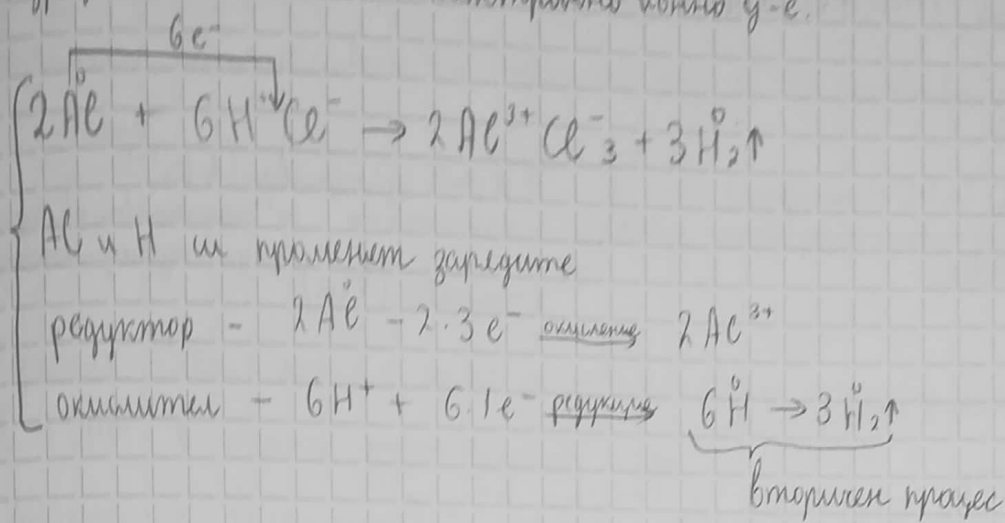 йонно у-е.
6e⁻
2Al⁰ + 6H⁺Cl⁻ → 2Al³⁺Cl⁻₃ + 3H⁰₂↑
Al и H си променят зарядите
редуктор - 2Al⁰ - 2.3e⁻ окисление 2Al³⁺
окислител - 6H⁺ + 6.1e⁻ редукция 6H⁰ → 3H⁰₂↑
вторичен процес